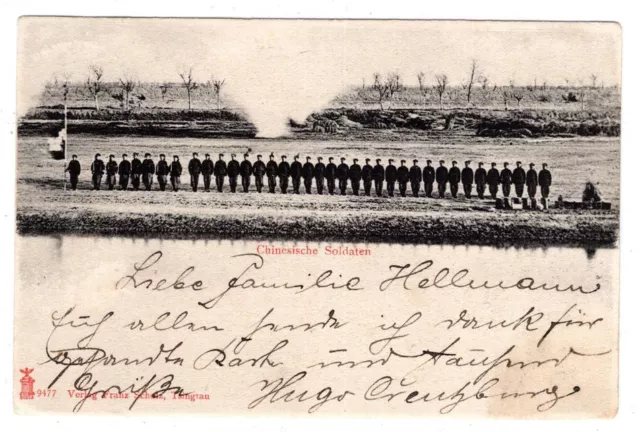 Chinesische Soldaten
Liebe Familie Hellmann
Euch allen sende ich dank für
gesandte Karte und tausend
Grüße Hugo Creutzburg
9477 Verlag Franz Scholz, Tsingtau